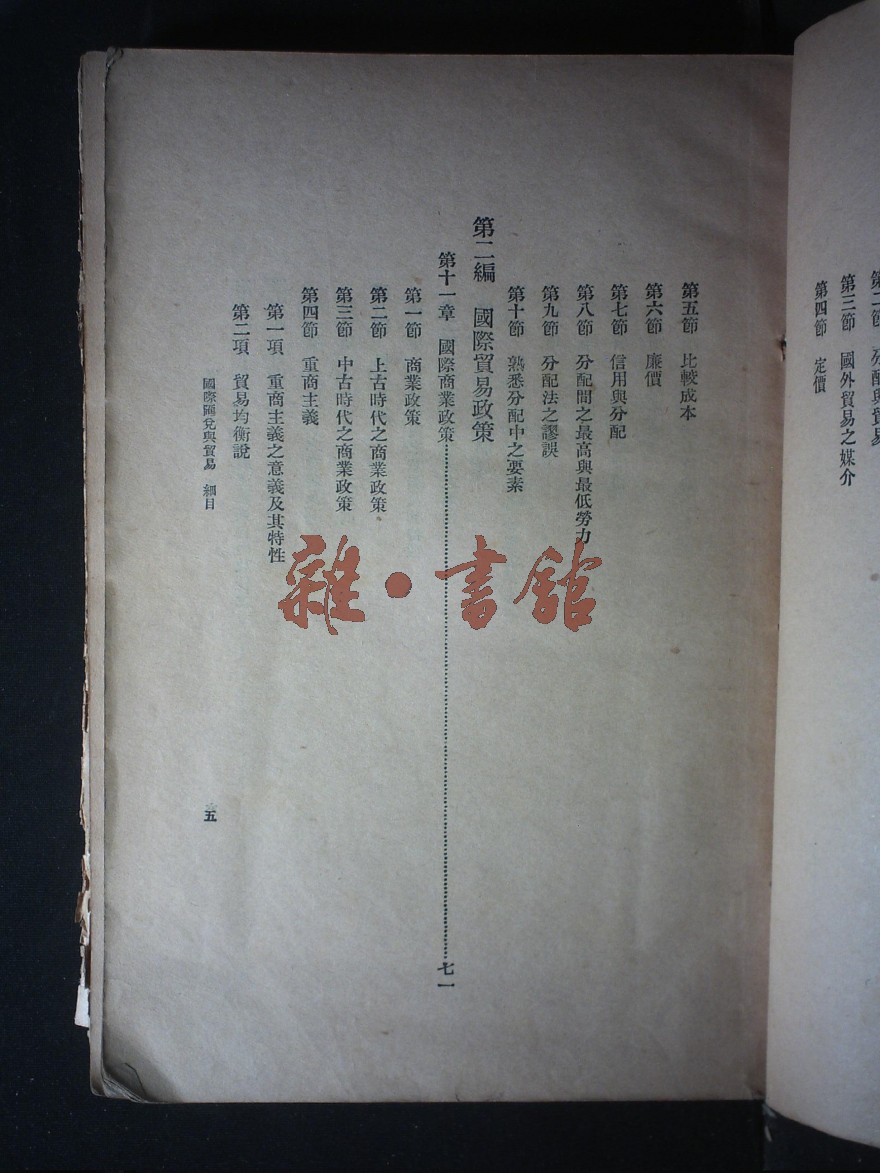 第三節　國外貿易之媒介
第四節　定價
第五節　比較成本
第六節　廉價
第七節　信用與分配
第八節　分配間之最高與最低勞力
第九節　分配法之謬誤
第十節　熟悉分配中之要素
第二編　國際貿易政策
第十一章　國際商業政策…………七一
第一節　商業政策
第二節　上古時代之商業政策
第三節　中古時代之商業政策
第四節　重商主義
第一項　重商主義之意義及其特性
第二項　貿易均衡說
國際匯兌與貿易　細目
五
雜·書館